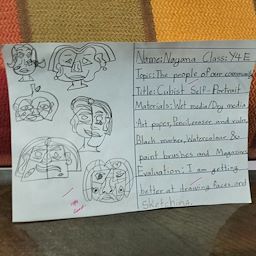 Name: Nayana Class: Y4 E
Topic: The people of our community
Title: Cubist Self-Portrait
Materials: Wet media/Dry media
Art paper, Pencil, eraser and ruler,
Black marker, Watercolour &
paint brushes and Magazines
Evaluation: I am getting
better at drawing faces and
Sketching.